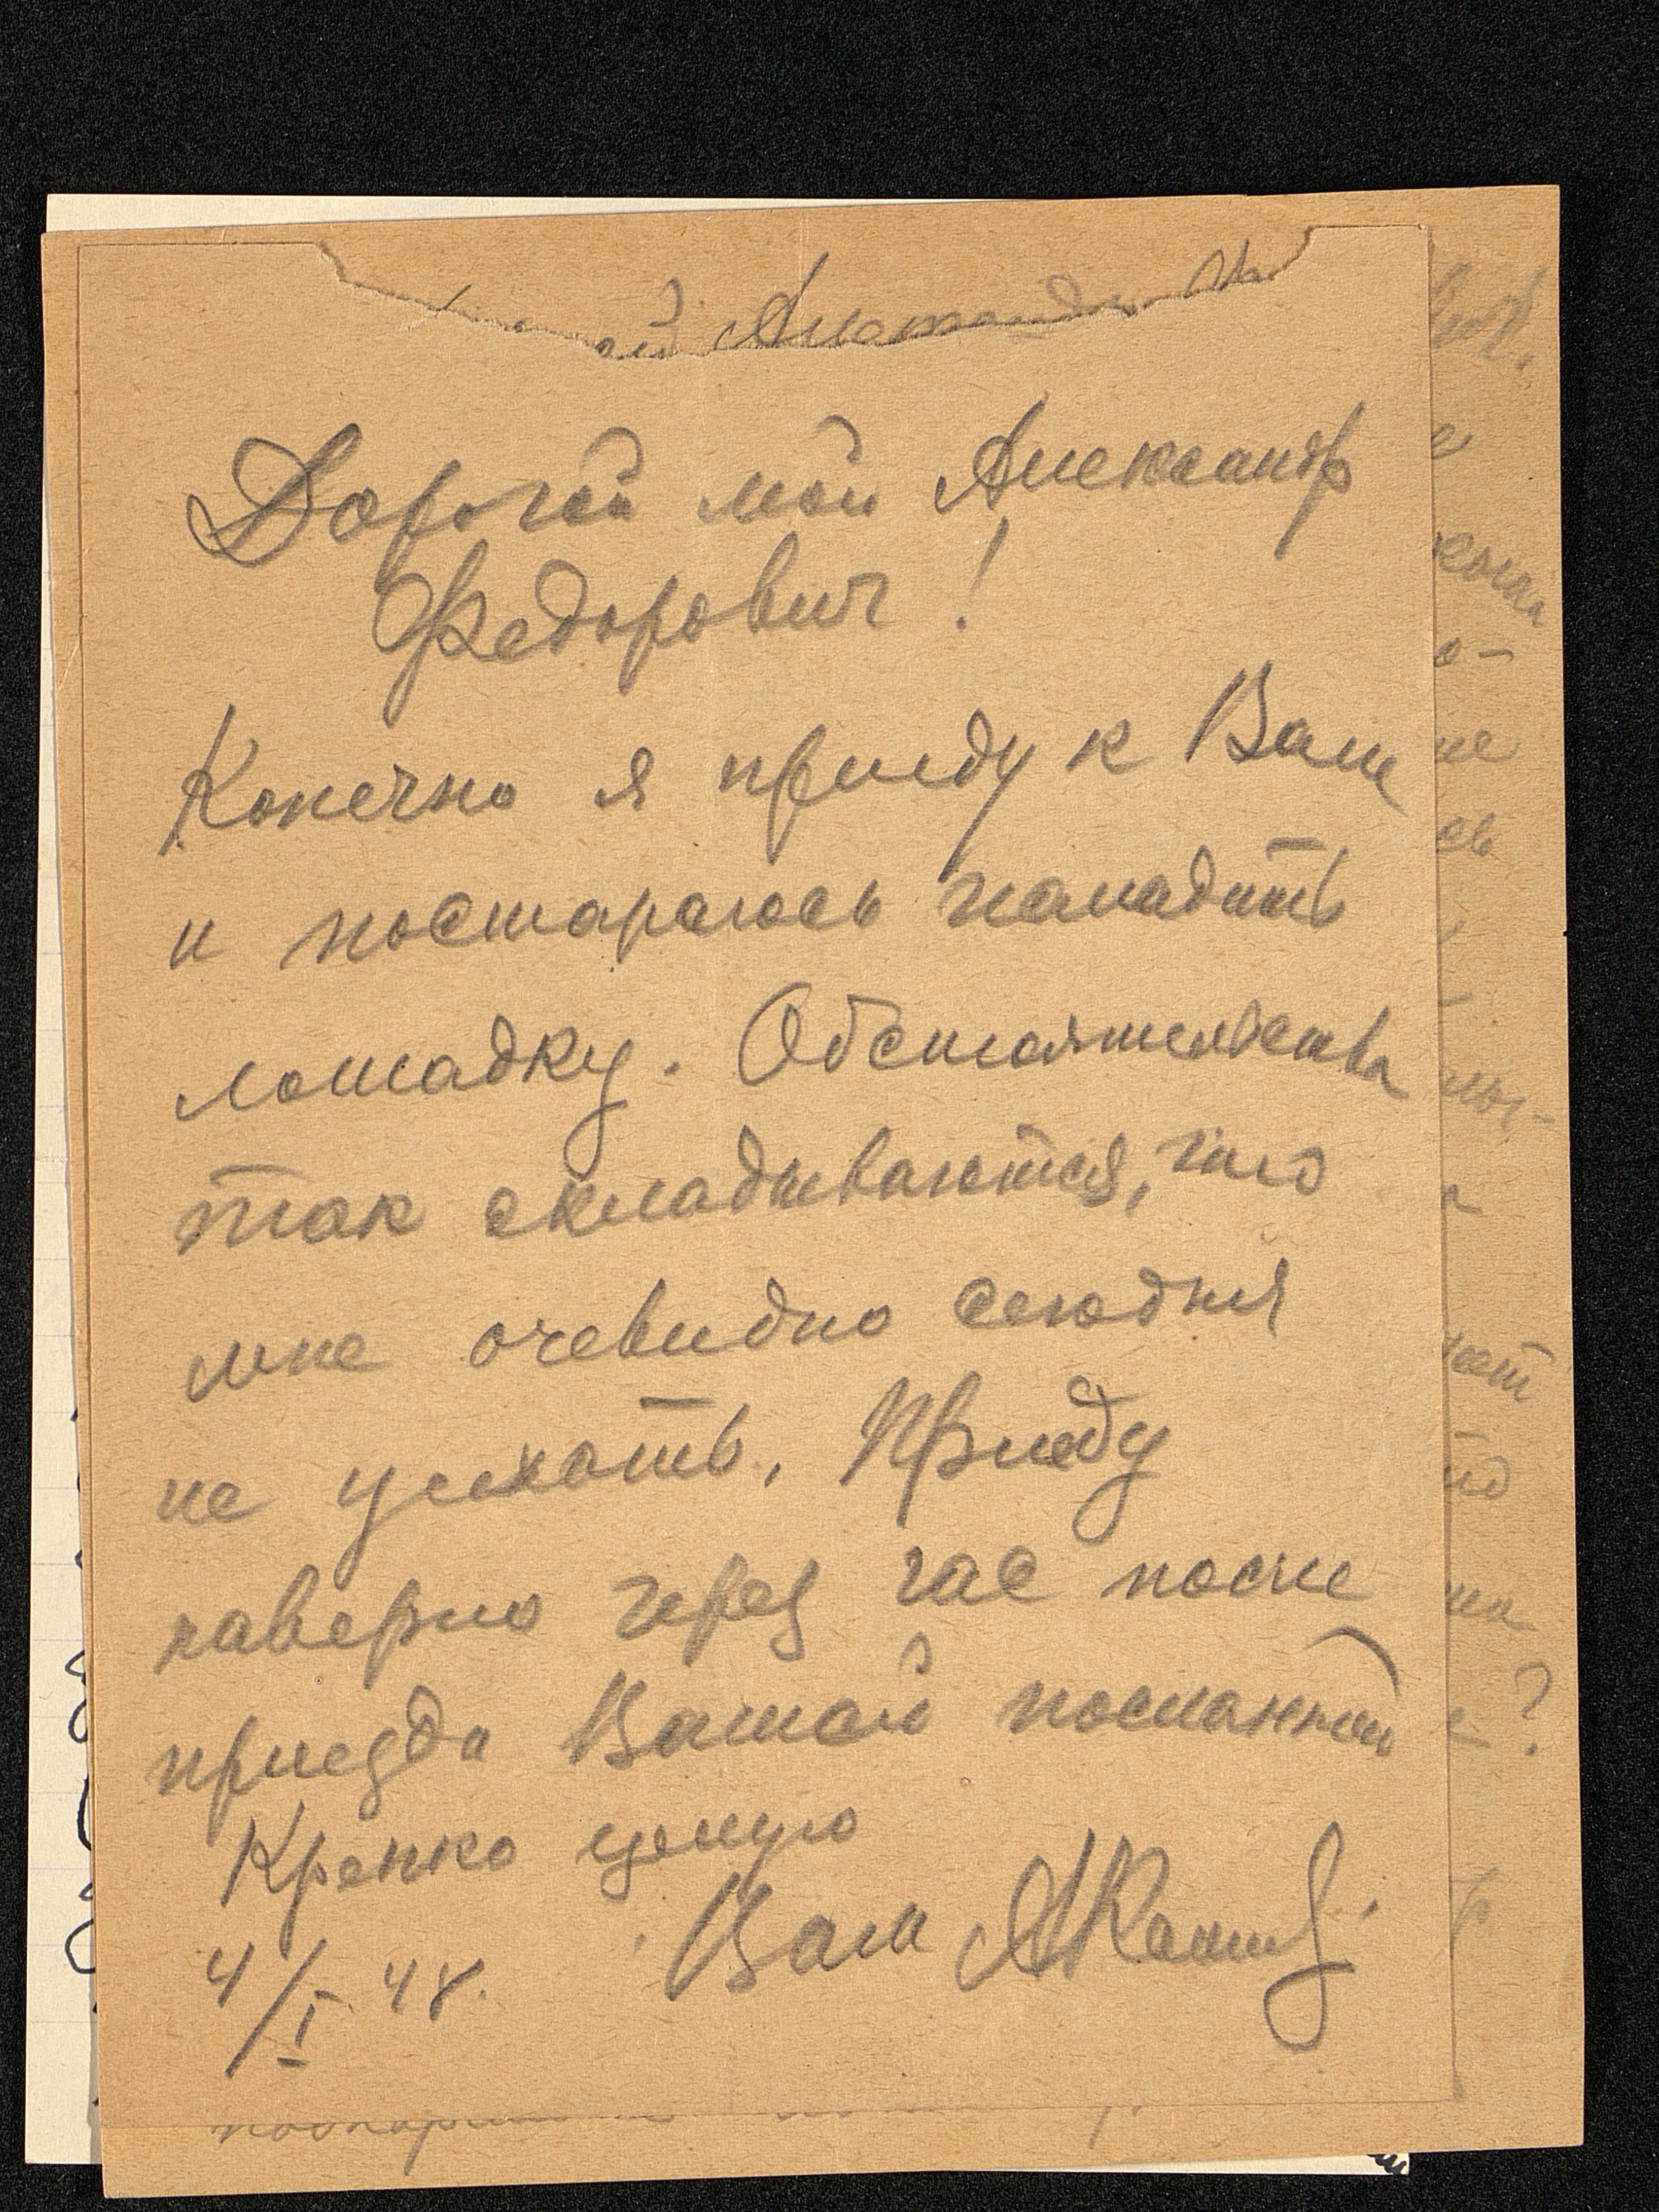 Дорогой мой Александр
Федорович!
Конечно я приеду к Вам
и постараюсь наладить
лошадку. Обстоятельства
так складываются, что
мне очевидно сегодня
не уехать. Приеду
наверно через час после
приезда Вашей посланной
Крепко целую
Ваш
4/I 48.